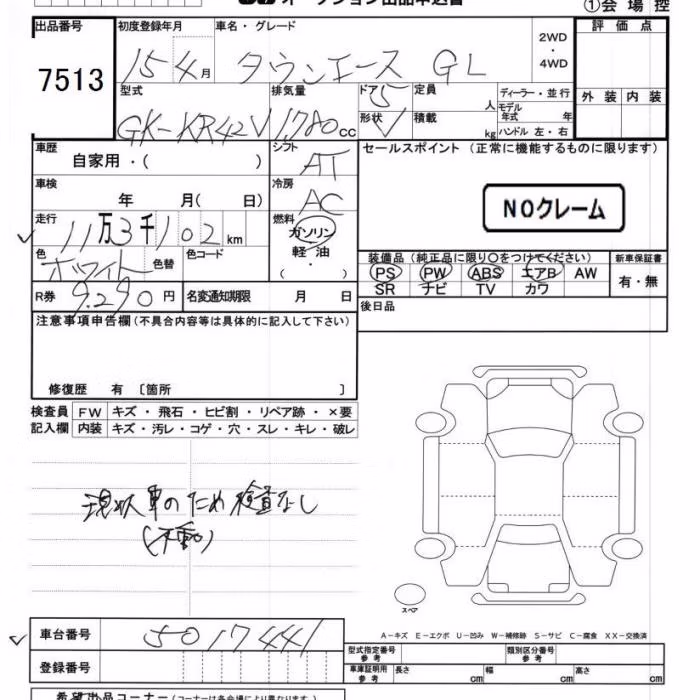 オークション出品申込書 ①会場控
出品番号 初度登録年月 車名・グレード 2WD・4WD 評価点
7513 15 4月 タウンエース GL
型式 排気量 ドア 定員 人 ディーラー・並行 外装 内装
GK-KR42V 1,780cc 5 形状 V 積載 kg モデル年式 年 ハンドル 左・右
車歴 シフト セールスポイント (正常に機能するものに限ります)
自家用・( ) AT
車検 年 月( 日) 冷房 AC NOクレーム
走行 11万3千102km 燃料 ガソリン 軽油 ( ・ )
色 ホワイト 色替 色コード 装備品 (純正品に限り○をつけてください) 新車保証書
PS PW ABS エアB AW 有・無
R券 9,290円 名変通知期限 月 日 SR ナビ TV カワ
注意事項申告欄(不具合内容等は具体的に記入して下さい) 後日品
修復歴 有 〔箇所 〕
検査員 FW キズ・飛石・ヒビ割・リペア跡・×要
記入欄 内装 キズ・汚レ・コゲ・穴・スレ・キレ・破レ
現状車のため検査なし
(不動)
スペア
A-キズ E-エクボ U-凹み W-補修跡 S-サビ C-腐食 XX-交換済
車台番号 5017441 型式指定番号 参考 類別区分番号 参考
登録番号 車庫証明用 参考 長さ cm 幅 cm 高さ cm
希望出品コーナー (コーナーは各会場により異なります。)